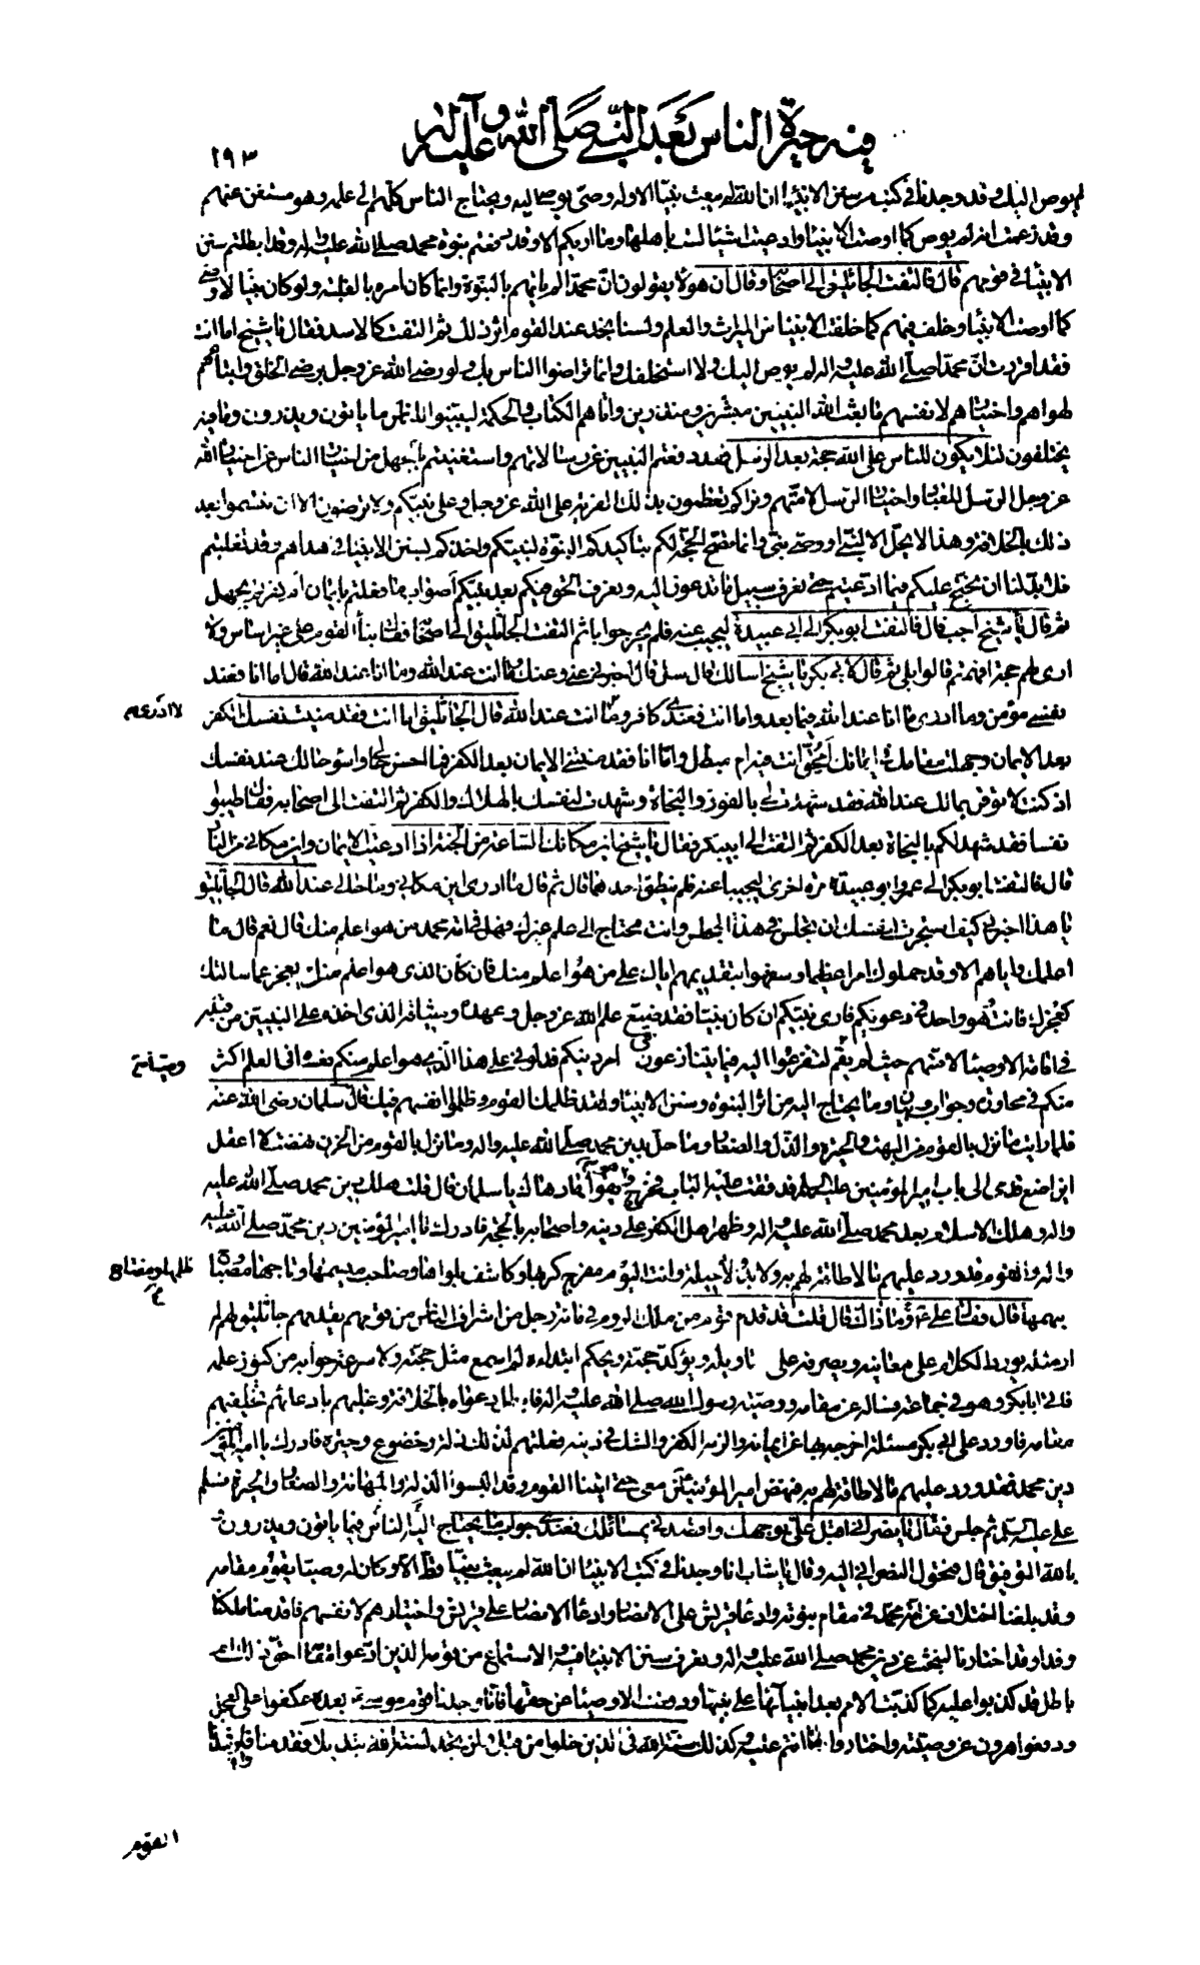 فيه حيرة الناس بعد النبي صلى الله عليه وآله
١٩٣
لم يوص اليك وقد وجدنا في كتب من سنن الانبياء ان الله لم يبعث نبيا الا وله وصي يوصي اليه ويحتاج الناس كلهم الى علمه وهو مستغن عنهم
وقد زعمت انه لم يوص كما اوصت الانبياء وادعيت اشياء لست باهلها وما اراكم الا وقد دفعتم نبوة محمد صلى الله عليه واله وقد ابطلتم سنن
الانبياء في قومهم قال فالتفت الجاثليق الى اصحابه وقال ان هؤلاء يقولون ان محمدا لم ياتهم بالنبوة وانما كان امره بالغلبة ولو كان نبيا لاوصى
كما اوصت الانبياء وخلف فيهم كما خلفت الانبياء من الميراث والعلم ولسنا نجد عند القوم اثر ذلك ثم التفت كالاسد فقال يا شيخ اما انت
فقد اقررت ان محمدا صلى الله عليه واله لم يوص اليك ولا استخلفك وانما تراضوا الناس بك ولو رضي الله عز وجل برضى الخلق واتباعهم
لهواهم واختيارهم لانفسهم ما بعث الله النبيين مبشرين ومنذرين واتاهم الكتاب والحكمة ليبينوا للناس ما ياتون ويذرون وما فيه
يختلفون لئلا يكون للناس على الله حجة بعد الرسل فقد دفعتم النبيين عن رسالاتهم واستغنيتم بالجهل من اختيار الناس عن اختيار الله
عز وجل الرسل للعباد واختيار الرسل لامتهم ونراكم تعظمون بذلك الفرية على الله عز وجل وعلى نبيكم ولا ترضون الا ان تتسموا بعد
ذلك بالخلافة وهذا لا يحل الا لنبي او وصي نبي وانما تصح الحجة لكم بتاكيدكم النبوة لنبيكم واخذكم بسنن الانبياء في هداهم وقد تغلبتم
فلا بد لنا ان نحتج عليكم فيما ادعيتم حتى نعرف سبيل ما تدعون اليه ونعرف الحق فيكم بعد نبيكم اصواب ما فعلتم بايمان ام كفرتم بجهل
ثم قال يا شيخ اجب قال فالتفت ابو بكر الى ابي عبيدة ليجيب عنه فلم يحر جوابا ثم التفت الجاثليق الى اصحابه فقال بناء القوم على غير اساس ولا
ارى لهم حجة افهمتم قالوا بلى ثم قال لابي بكر يا شيخ اسالك قال سل قال اخبرني عني وعنك ما انت عند الله وما انا عند الله قال اما انا فعند
نفسي مؤمن وما ادري ما انا عند الله فيما بعد واما انت فعندي كافر وما انت عند الله قال الجاثليق اما انت فقد منيت نفسك الكفر
لا ادري
بعد الايمان وجهلت مقامك في ايمانك امحق انت فيه ام مبطل واما انا فقد منيتني الايمان بعد الكفر فما احسن حالي واسوء حالك عند نفسك
اذ كنت لا توقن بما لك عند الله فقد شهدت لي بالفوز والنجاة وشهدت لنفسك بالهلاك والكفر ثم التفت الى اصحابه فقال طيبوا
نفسا فقد شهد لكم بالنجاة بعد الكفر ثم التفت الى ابي بكر فقال يا شيخ اين مكانك الساعة من الجنة اذا ادعيت الايمان واين مكاني من النار
قال فالتفت ابو بكر الى عمر وابو عبيدة مرة اخرى ليجيبا عنه فلم ينطق احدهما قال ثم قال ما ادري اين مكاني وما حالي عند الله قال الجاثليق
يا هذا اخبرني كيف استجزت لنفسك ان تجلس في هذا المجلس وانت محتاج الى علم غيرك فهل في امة محمد من هو اعلم منك قال نعم قال ما
اعلمك واياهم الا وقد حملوك امرا عظيما وسفهوا بتقديمهم اياك على من هو اعلم منك فان كان الذي هو اعلم منك يعجز عما سالتك
كعجزك فانت وهو واحد في دعويكم فارى نبيكم ان كان نبيا فقد ضيع علم الله عز وجل وعهده وميثاقه الذي اخذه على النبيين من قبله
في اقامة الاوصياء لامتهم حيث لم يقم لتفزعوا اليه فيما تتنازعون في امر دينكم فدلوني على هذا الذي هو اعلم منكم فعساه في العلم اكثر
وصيا
منكم في محاورة وجواب وبيان وما يحتاج اليه من اثر النبوة وسنن الانبياء ولقد ظلمك القوم وظلموا انفسهم فيك قال سلمان رضي الله عنه
فلما رايت ما نزل بالقوم من البهت والحيرة والذل والصغار وما حل بدين محمد صلى الله عليه واله وما نزل بالقوم من الحزن نهضت لا اعقل
اين اضع قدمي الى باب امير المؤمنين عليه السلام فدققت عليه الباب فخرج وهو يقول ما دهاك يا سلمان قال قلت هلك دين محمد صلى الله عليه
واله وهلك الاسلام بعد محمد صلى الله عليه واله وظهر اهل الكفر على دينه واصحابه بالحجة فادرك يا امير المؤمنين دين محمد صلى الله عليه
واله والقوم قد ورد عليهم ما لا طاقة لهم به ولا بد ولا حيلة وانت اليوم مفرج كربها وكاشف بلواها وصاحب ميسمها وتاجها ومصباح
ظلمها ومفتاح
مبهمها قال فقال علي ع وما ذاك قال قلت قد قدم قوم من ملك الروم في مائة رجل من اشراف الناس من قومهم يقدمهم جاثليق لهم لم
ار مثله يورد الكلام على معانيه ويصرفه على تاويله ويؤكد حجته ويحكم ابتداءه لم اسمع مثل حجته ولا سرعة جوابه من كنوز علمه
فاتى ابا بكر وهو في جماعة فساله عن مقامه ووصية رسول الله صلى الله عليه واله فابطل دعواه بالخلافة وغلبهم بادعائهم تخليفهم
مقامه فاورد على ابي بكر مسئلة اخرجه بها عن ايمانه والزمه الكفر والشك في دينه فعلتهم لذلك ذلة وخضوع وحيرة فادرك يا امير المؤمنين
دين محمد فقد ورد عليهم ما لا طاقة لهم به فنهض امير المؤمنين ع معي حتى اتينا القوم وقد البسوا الذلة والمهانة والصغار والحيرة فسلم
علي عليه السلام ثم جلس فقال يا نصراني اقبل علي بوجهك واقصدني بمسائلك فعندي جواب ما يحتاج اليه الناس فيما ياتون ويذرون
بالله التوفيق قال فتحول النصراني اليه وقال يا شاب انا وجدنا في كتب الانبياء ان الله لم يبعث نبيا قط الا وكان له وصيا يقوم مقامه
وقد بلغنا اختلاف عن امة محمد في مقام نبوته وادعاء قريش على الانصار وادعاء الانصار على قريش واختيارهم لانفسهم فاقدمنا ملكنا
وفدا وقد اختارنا لنبحث عن دين محمد صلى الله عليه واله ونعرف سنن الانبياء فيه والاستماع من قومه الذين ادعوا مقامه احق ذلك ام
باطل قد كذبوا عليه كما كذبت الامم بعد انبيائها على نبيها ودفعت الاوصياء عن حقها فانا وجدنا قوم موسى ع بعده عكفوا على العجل
ودفعوا هرون عن وصيته واختاروا ما انتم عليه وكذلك سنة الله في الذين خلوا من قبل ولن تجد لسنة الله تبديلا فقدمنا فارشدنا
القوم